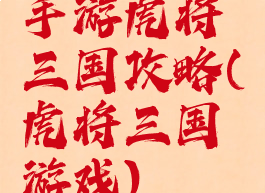 手游虎将
三国攻略(
虎将三国
游戏)